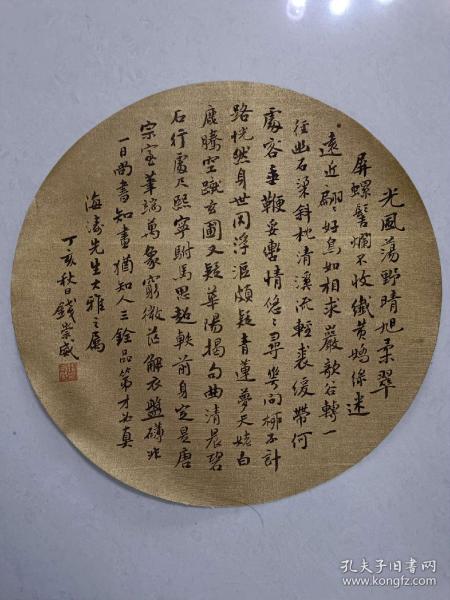 光風蕩野晴旭柔翠
屏螺髻爛不收纖黃媯綠迷
遠近翩〻好鳥如相求巖欹谷轉一
徑幽石梁斜枕清溪流輕裘緩帶何
處客垂鞭妥轡情悠〻尋花問柳不計
路恍然身世閬浮漚頗疑青蓮夢天姥白
鹿騰空躡玄圃又疑華陽揭句曲清晨碧
石行處尺熙寧駙馬思超軼前身定是唐
宗室筆端萬象窮微茫解衣盤礴非
一日尚書知畫猶知人三銓品第才必真
海濤先生大雅之屬
丁亥秋日錢崇威
孔夫子旧书网
www.kongfz.com